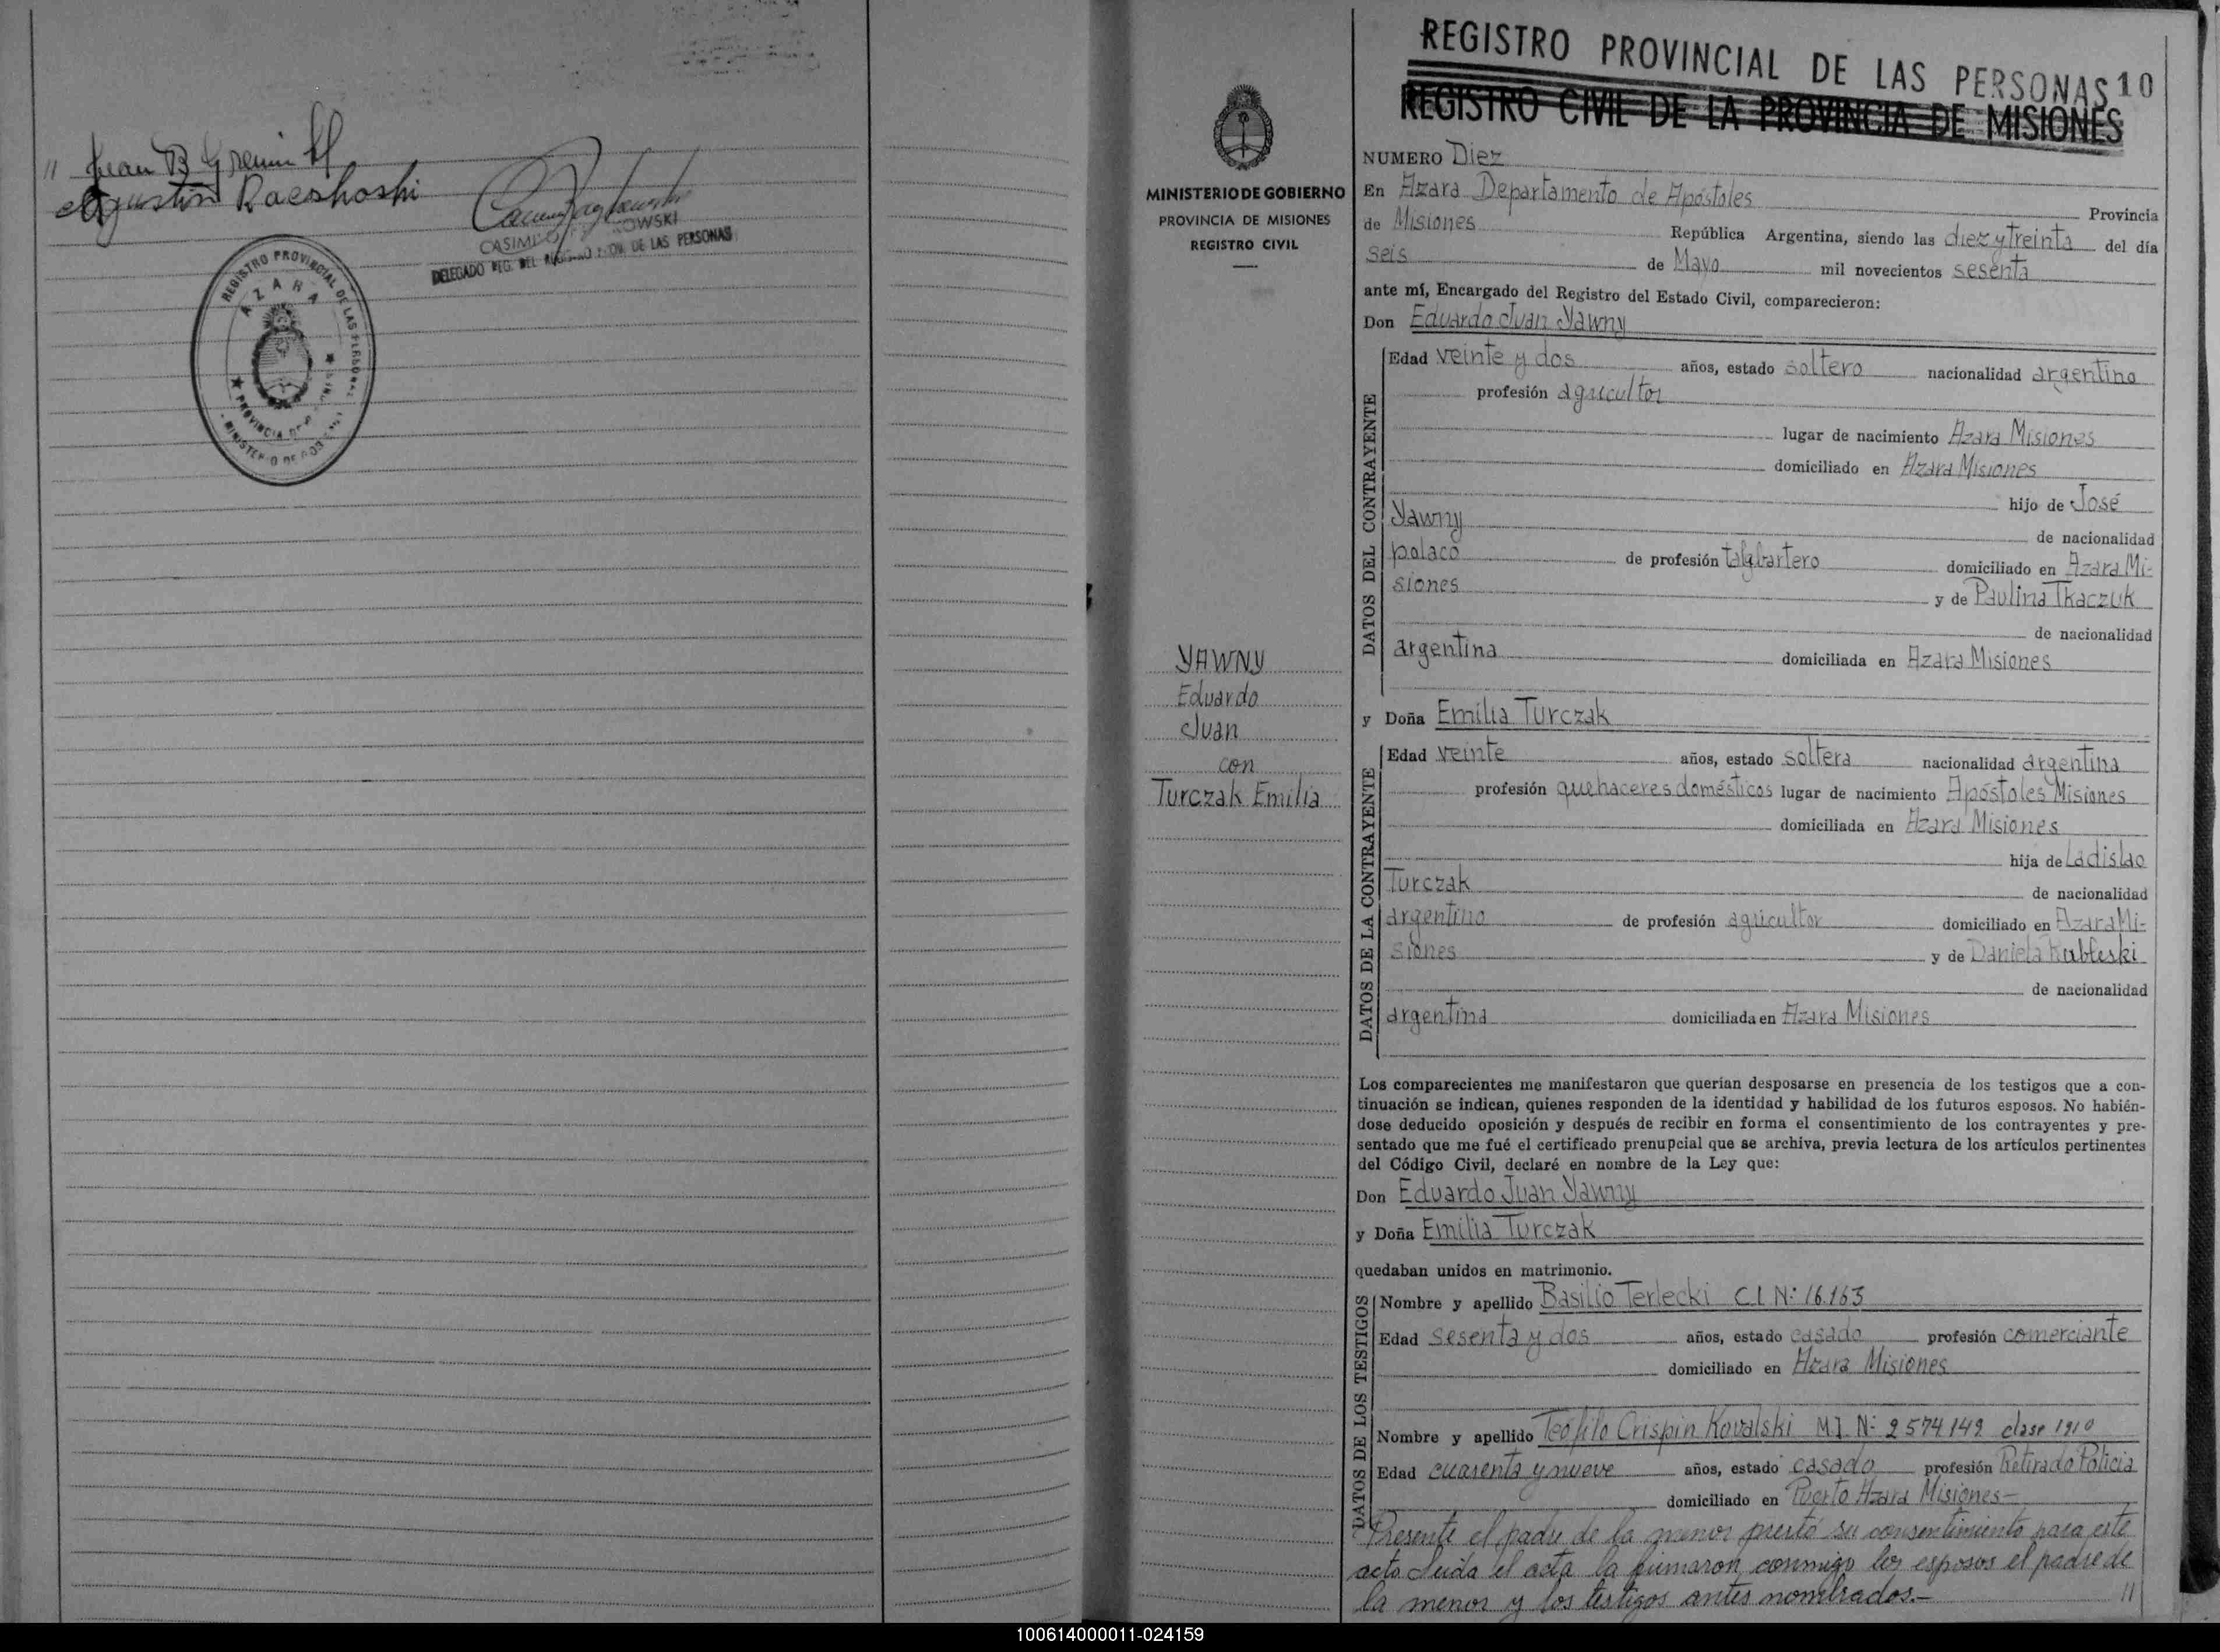 " Juan B Grenin H
Agustin Racshoski
CASIMIRO
DELEGADO REG. DEL REGISTRO PROV. DE LAS PERSONAS
REGISTRO PROVINCIAL DE LAS PERSONAS
AZARA
PROVINCIA DE
MINISTERIO DE GOBIERNO
MINISTERIO DE GOBIERNO
PROVINCIA DE MISIONES
REGISTRO CIVIL
YAWNY
Eduardo
Juan
con
Turczak Emilia
REGISTRO PROVINCIAL DE LAS PERSONAS 10
REGISTRO CIVIL DE LA PROVINCIA DE MISIONES
NUMERO Diez
En Azara Departamento de Apóstoles Provincia
de Misiones República Argentina, siendo las diez y treinta del día
seis de Mayo mil novecientos sesenta
ante mí, Encargado del Registro del Estado Civil, comparecieron:
Don Eduardo Juan Yawny
DATOS DEL CONTRAYENTE
Edad veinte y dos años, estado soltero nacionalidad argentino
profesión agricultor
lugar de nacimiento Azara Misiones
domiciliado en Azara Misiones
hijo de José
Yawny de nacionalidad
polaco de profesión talabartero domiciliado en Azara Mi-
siones y de Paulina Tkaczuk
de nacionalidad
argentina domiciliada en Azara Misiones
y Doña Emilia Turczak
DATOS DE LA CONTRAYENTE
Edad veinte años, estado soltera nacionalidad argentina
profesión quehaceres domésticos lugar de nacimiento Apóstoles Misiones
domiciliada en Azara Misiones
hija de Ladislao
Turczak de nacionalidad
argentino de profesión agricultor domiciliado en Azara Mi-
siones y de Daniela
de nacionalidad
argentina domiciliada en Azara Misiones
Los comparecientes me manifestaron que querían desposarse en presencia de los testigos que a con-
tinuación se indican, quienes responden de la identidad y habilidad de los futuros esposos. No habién-
dose deducido oposición y después de recibir en forma el consentimiento de los contrayentes y pre-
sentado que me fué el certificado prenupcial que se archiva, previa lectura de los artículos pertinentes
del Código Civil, declaré en nombre de la Ley que:
Don Eduardo Juan Yawny
y Doña Emilia Turczak
quedaban unidos en matrimonio.
DATOS DE LOS TESTIGOS
Nombre y apellido Basilio Terlecki C.I. Nº 16.163
Edad sesenta y dos años, estado casado profesión comerciante
domiciliado en Azara Misiones
Nombre y apellido Teófilo Crispin Kovalski M.I. Nº 2574149 clase 1910
Edad cuarenta y nueve años, estado casado profesión Retirado Policia
domiciliado en Puerto Azara Misiones—
Presente el padre de la menor prestó su consentimiento para este
acto leida el acta la firmaron conmigo los esposos el padre de
la menor y los testigos antes nombrados.— "
100614000011-024159